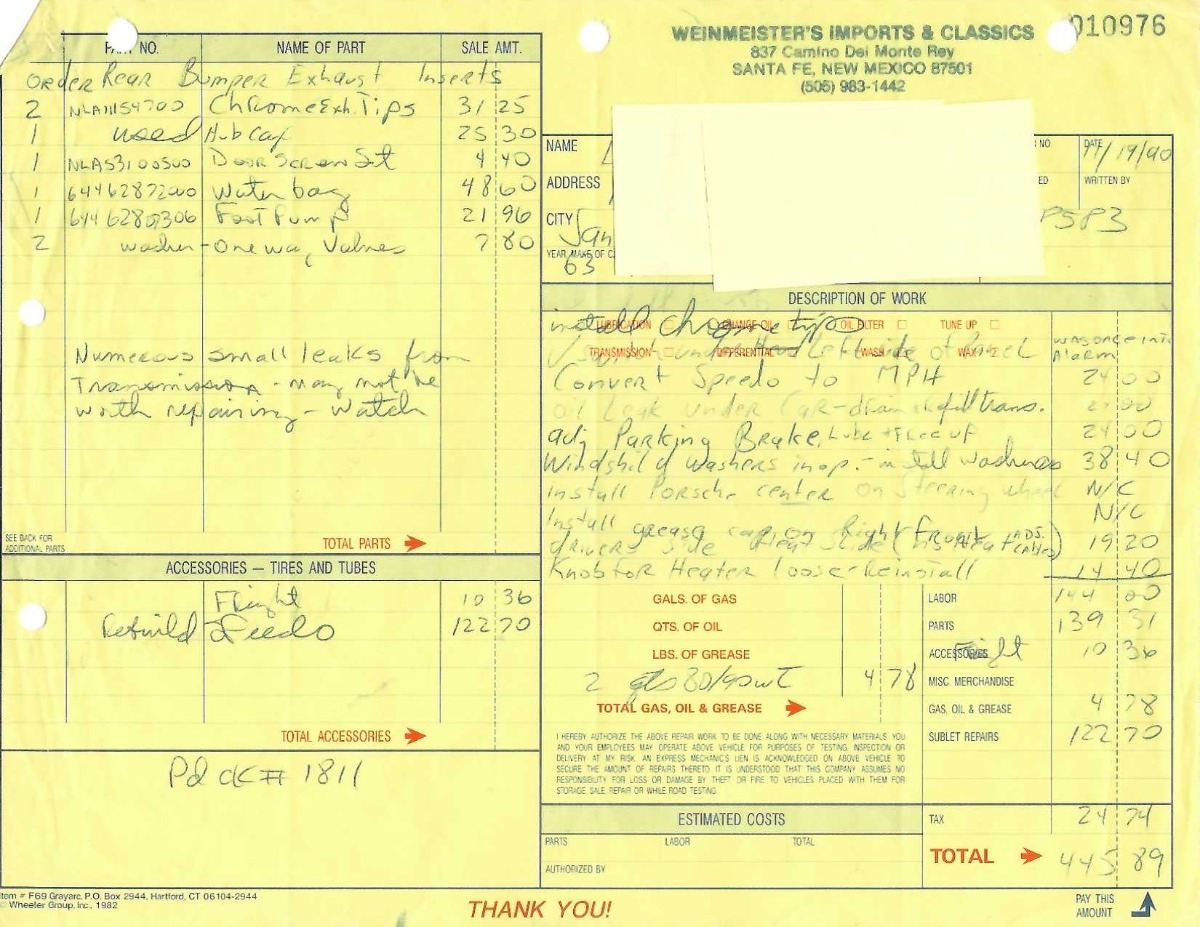 PART NO. NAME OF PART SALE AMT.
Order Rear Bumper Exhaust Inserts
2 NLA11154700 Chrome Exh. Tips 31 25
1 used Hub cap 25 30
1 NLA53100500 Door Screw Set 4 40
1 64462872200 Water bag 48 60
1 Foot Pump 21 96
2 washer - One way Valves 7 80
Numerous small leaks from
Transmission - may not be
worth repairing - Watch
SEE BACK FOR
ADDITIONAL PARTS
TOTAL PARTS
ACCESSORIES — TIRES AND TUBES
10 36
Rebuild Speedo 122 70
TOTAL ACCESSORIES
Pd CK# 1811
Item # F69 Grayarc, P.O. Box 2944, Hartford, CT 06104-2944
© Wheeler Group, Inc., 1982
THANK YOU!
WEINMEISTER'S IMPORTS & CLASSICS
837 Camino Del Monte Rey
SANTA FE, NEW MEXICO 87501
(505) 983-1442
010976
NAME
NO.
DATE
11/19/90
ADDRESS
WRITTEN BY
CITY San
YEAR, MAKE OF
63
DESCRIPTION OF WORK
LUBRICATION CHANGE OIL OIL FILTER TUNE UP
install chrome tips
TRANSMISSION DIFFERENTIAL WASH WAX
under Left side of
Alarm
Convert Speedo to MPH 24 00
Oil Leak under Car - drain & refill trans. 00
adj Parking Brake, Lube + Free up 24 00
Windshild Washers inop. - install washers 38 40
Install Porsche center on Steering wheel N/C
Install grease cap on Right Front N/C
drivers side 19 20
Knob for Heater loose - Reinstall 14 40
GALS. OF GAS
QTS. OF OIL
LBS. OF GREASE
2 qts 80/90wt 4 78
TOTAL GAS, OIL & GREASE
LABOR 144 00
PARTS 139 31
ACCESSORIES 10 36
MISC. MERCHANDISE
GAS, OIL & GREASE 4 78
SUBLET REPAIRS 122 70
I HEREBY AUTHORIZE THE ABOVE REPAIR WORK TO BE DONE ALONG WITH NECESSARY MATERIALS. YOU
AND YOUR EMPLOYEES MAY OPERATE ABOVE VEHICLE FOR PURPOSES OF TESTING, INSPECTION OR
DELIVERY AT MY RISK. AN EXPRESS MECHANIC'S LIEN IS ACKNOWLEDGED ON ABOVE VEHICLE TO
SECURE THE AMOUNT OF REPAIRS THERETO. IT IS UNDERSTOOD THAT THIS COMPANY ASSUMES NO
RESPONSIBILITY FOR LOSS OR DAMAGE BY THEFT OR FIRE TO VEHICLES PLACED WITH THEM FOR
STORAGE, SALE, REPAIR OR WHILE ROAD TESTING.
ESTIMATED COSTS
PARTS LABOR TOTAL
AUTHORIZED BY
TAX 24 74
TOTAL 445 89
PAY THIS
AMOUNT